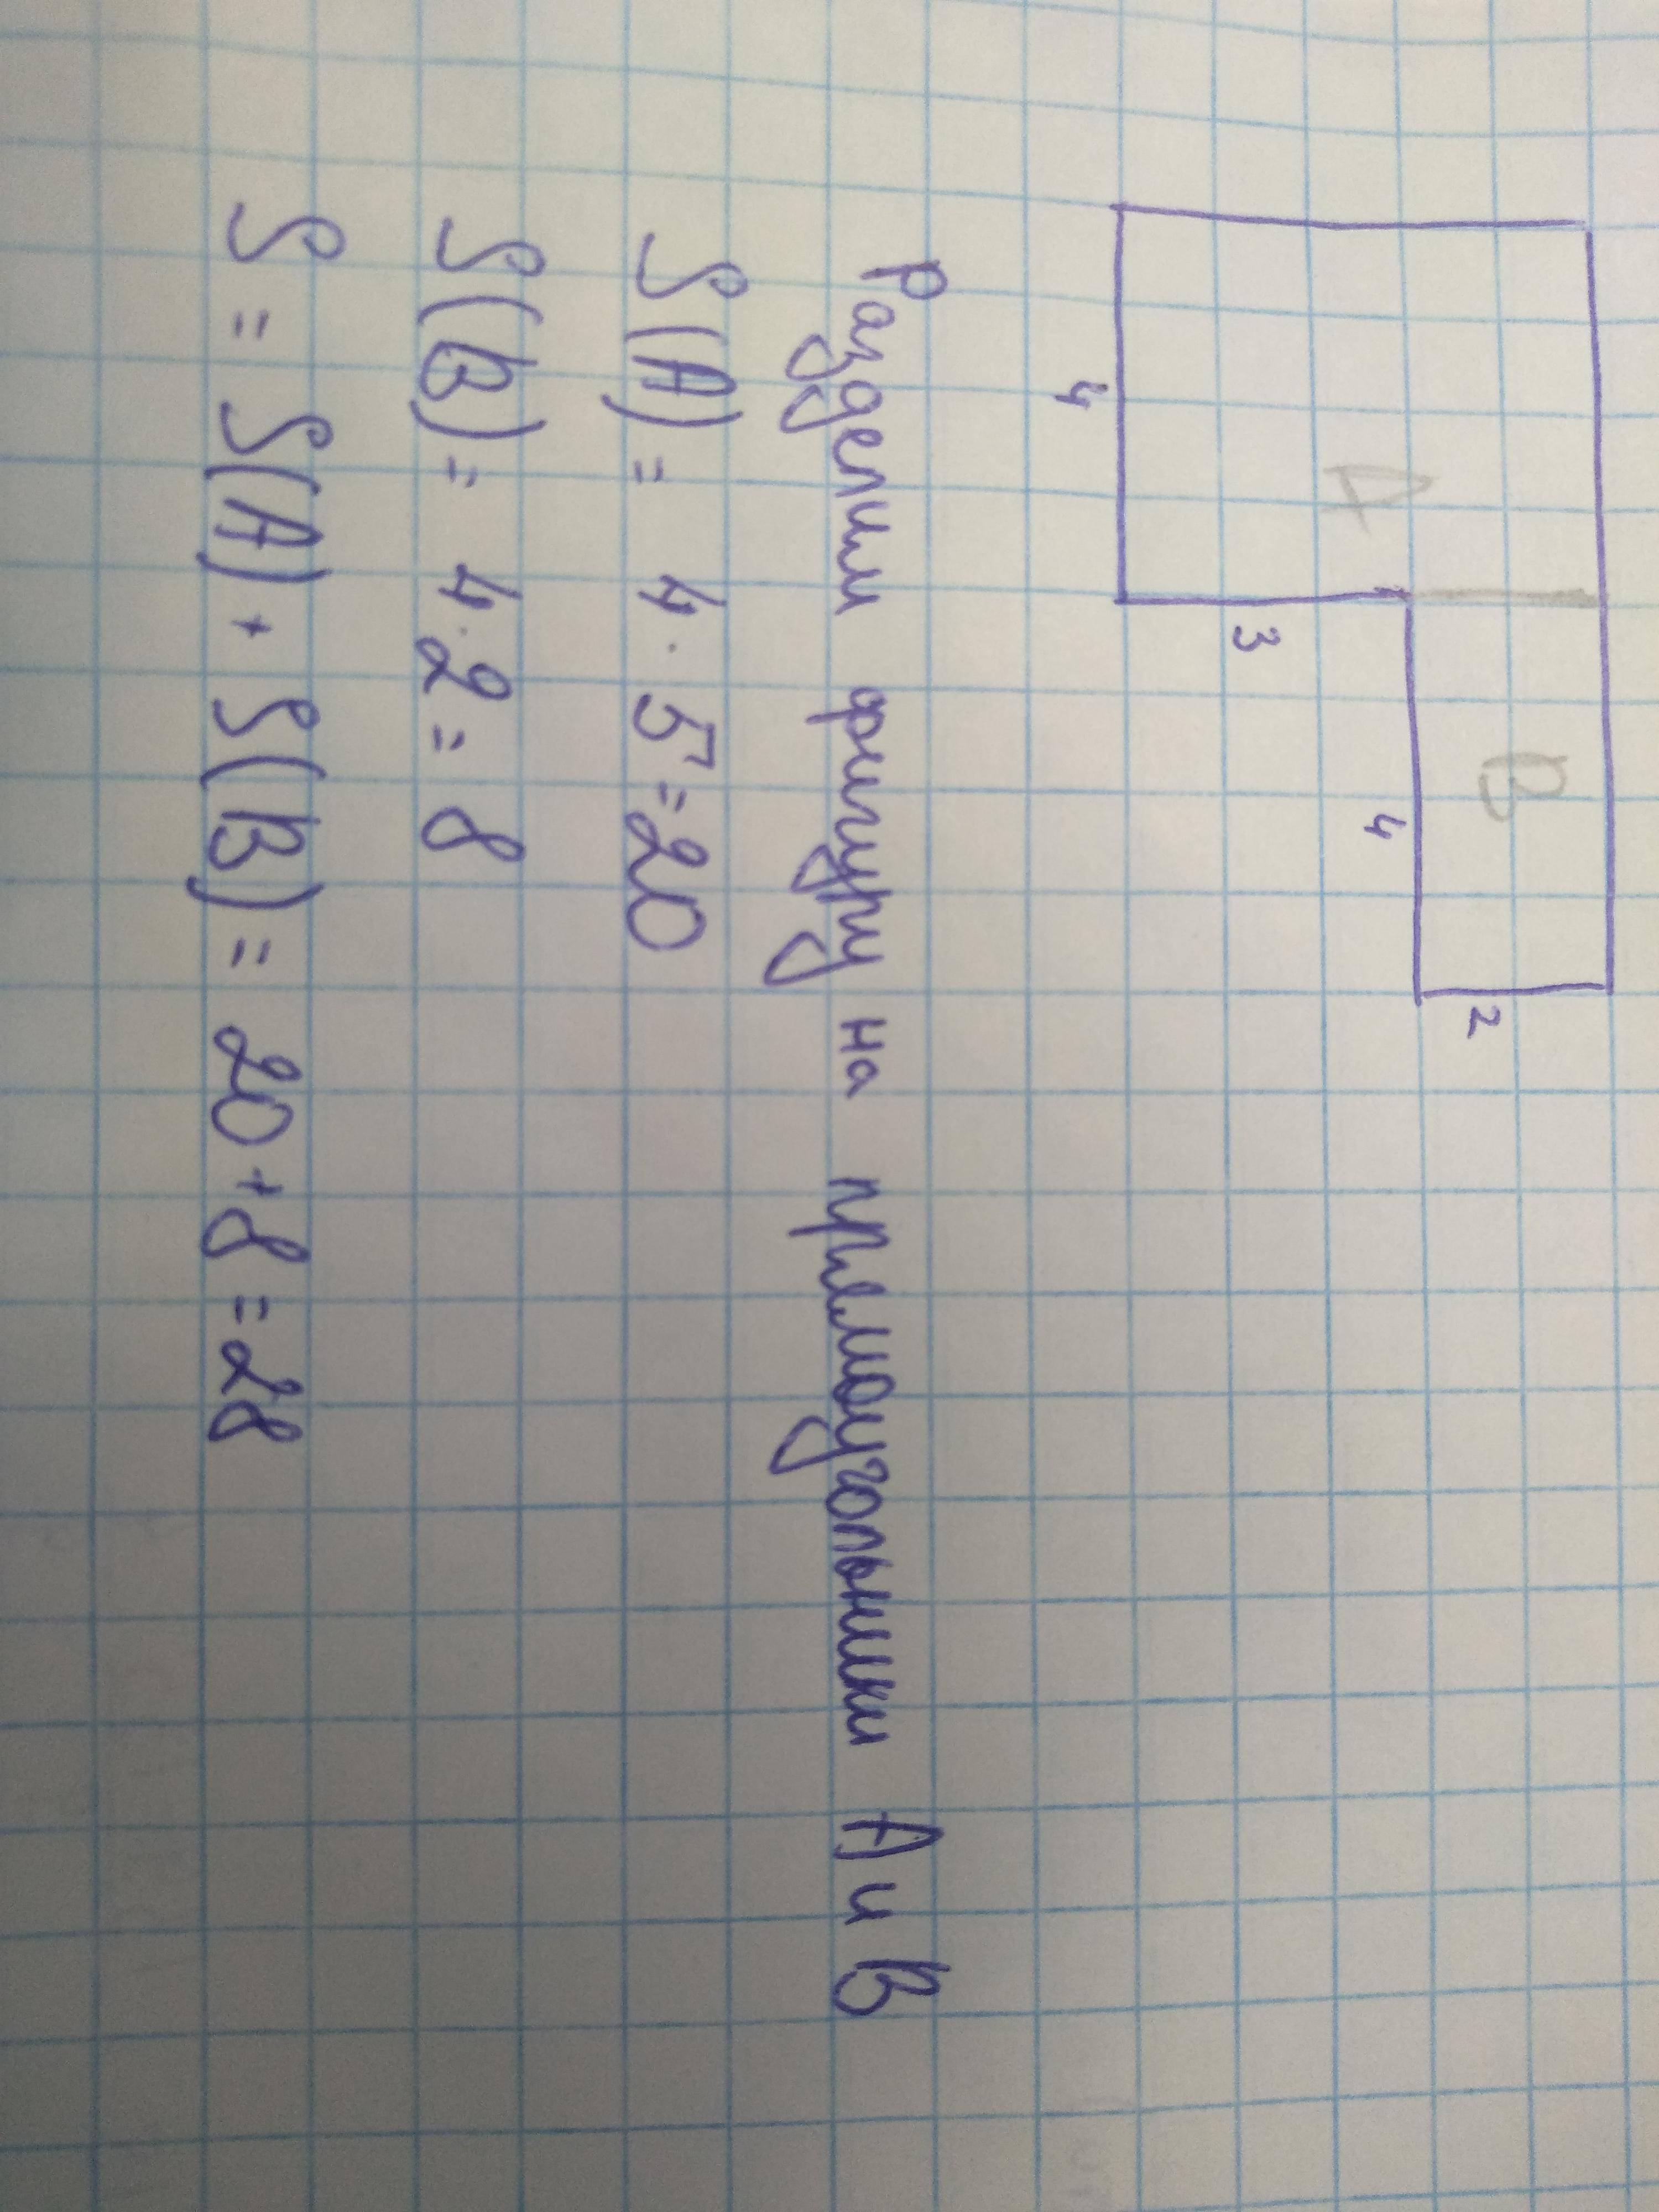 A
B
2
3
4
4
Разделим фигуру на прямоугольники A и B
S(A) = 4 · 5 = 20
S(B) = 4 · 2 = 8
S = S(A) + S(B) = 20 + 8 = 28